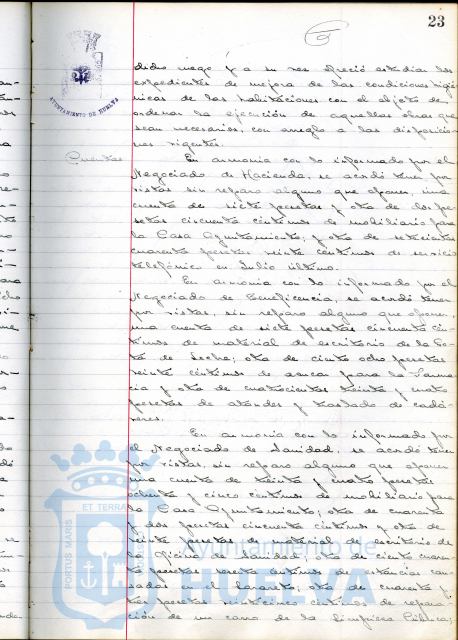 23
AYUNTAMIENTO DE HUELVA
dicho ruego y a su vez ofreció estudiar los
expedientes de mejora de las condiciones higié-
nicas de las habitaciones con el objeto de
ordenar la ejecución de aquellas obras que
sean necesarias, con arreglo a las disposicio-
nes vigentes.
Cuentas
En armonia con lo informado por el
Negociado de Hacienda, se acordó tener por
vistas sin reparo alguno que oponer, una
cuenta de siete pesetas y otra de dos pe-
setas cincuenta céntimos de mobiliario para
la Casa Ayuntamiento; y otra de setecientas
cuarenta pesetas veinte centimos de servicio
telefónico en Julio último.
En armonia con lo informado por el
Negociado de Beneficencia, se acordó tener
por vistas, sin reparo alguno que oponer,
una cuenta de siete pesetas cincuenta cén-
timos de material de escritorio de la Go-
ta de Leche; otra de ciento ocho pesetas
veinte céntimos de azucar para la Farma-
cia y otra de cuatrocientas treinta y cuatro
pesetas de ataudes y traslado de cadá-
veres.
En armonia con lo informado por
el Negociado de Sanidad, se acordó tener
por vistas, sin reparo alguno que oponer
una cuenta de treinta y cuatro pesetas
ochenta y cinco centimos de mobiliario para
la Casa Ayuntamiento; otra de cuarenta
y dos pesetas cincuenta centimos y otra de
veinte pesetas de material de escritorio de
la Oficina de Sanidad; otra de ciento cuaren-
ta pesetas centimos de estancias cau-
sadas en el Lazareto; otra de cuarenta y
tres pesetas veinticinco centimos de repara-
ción de un carro de la Limpieza Pública;
ET TERRÆ
PORTUS MARIS
Ayuntamiento de
HUELVA